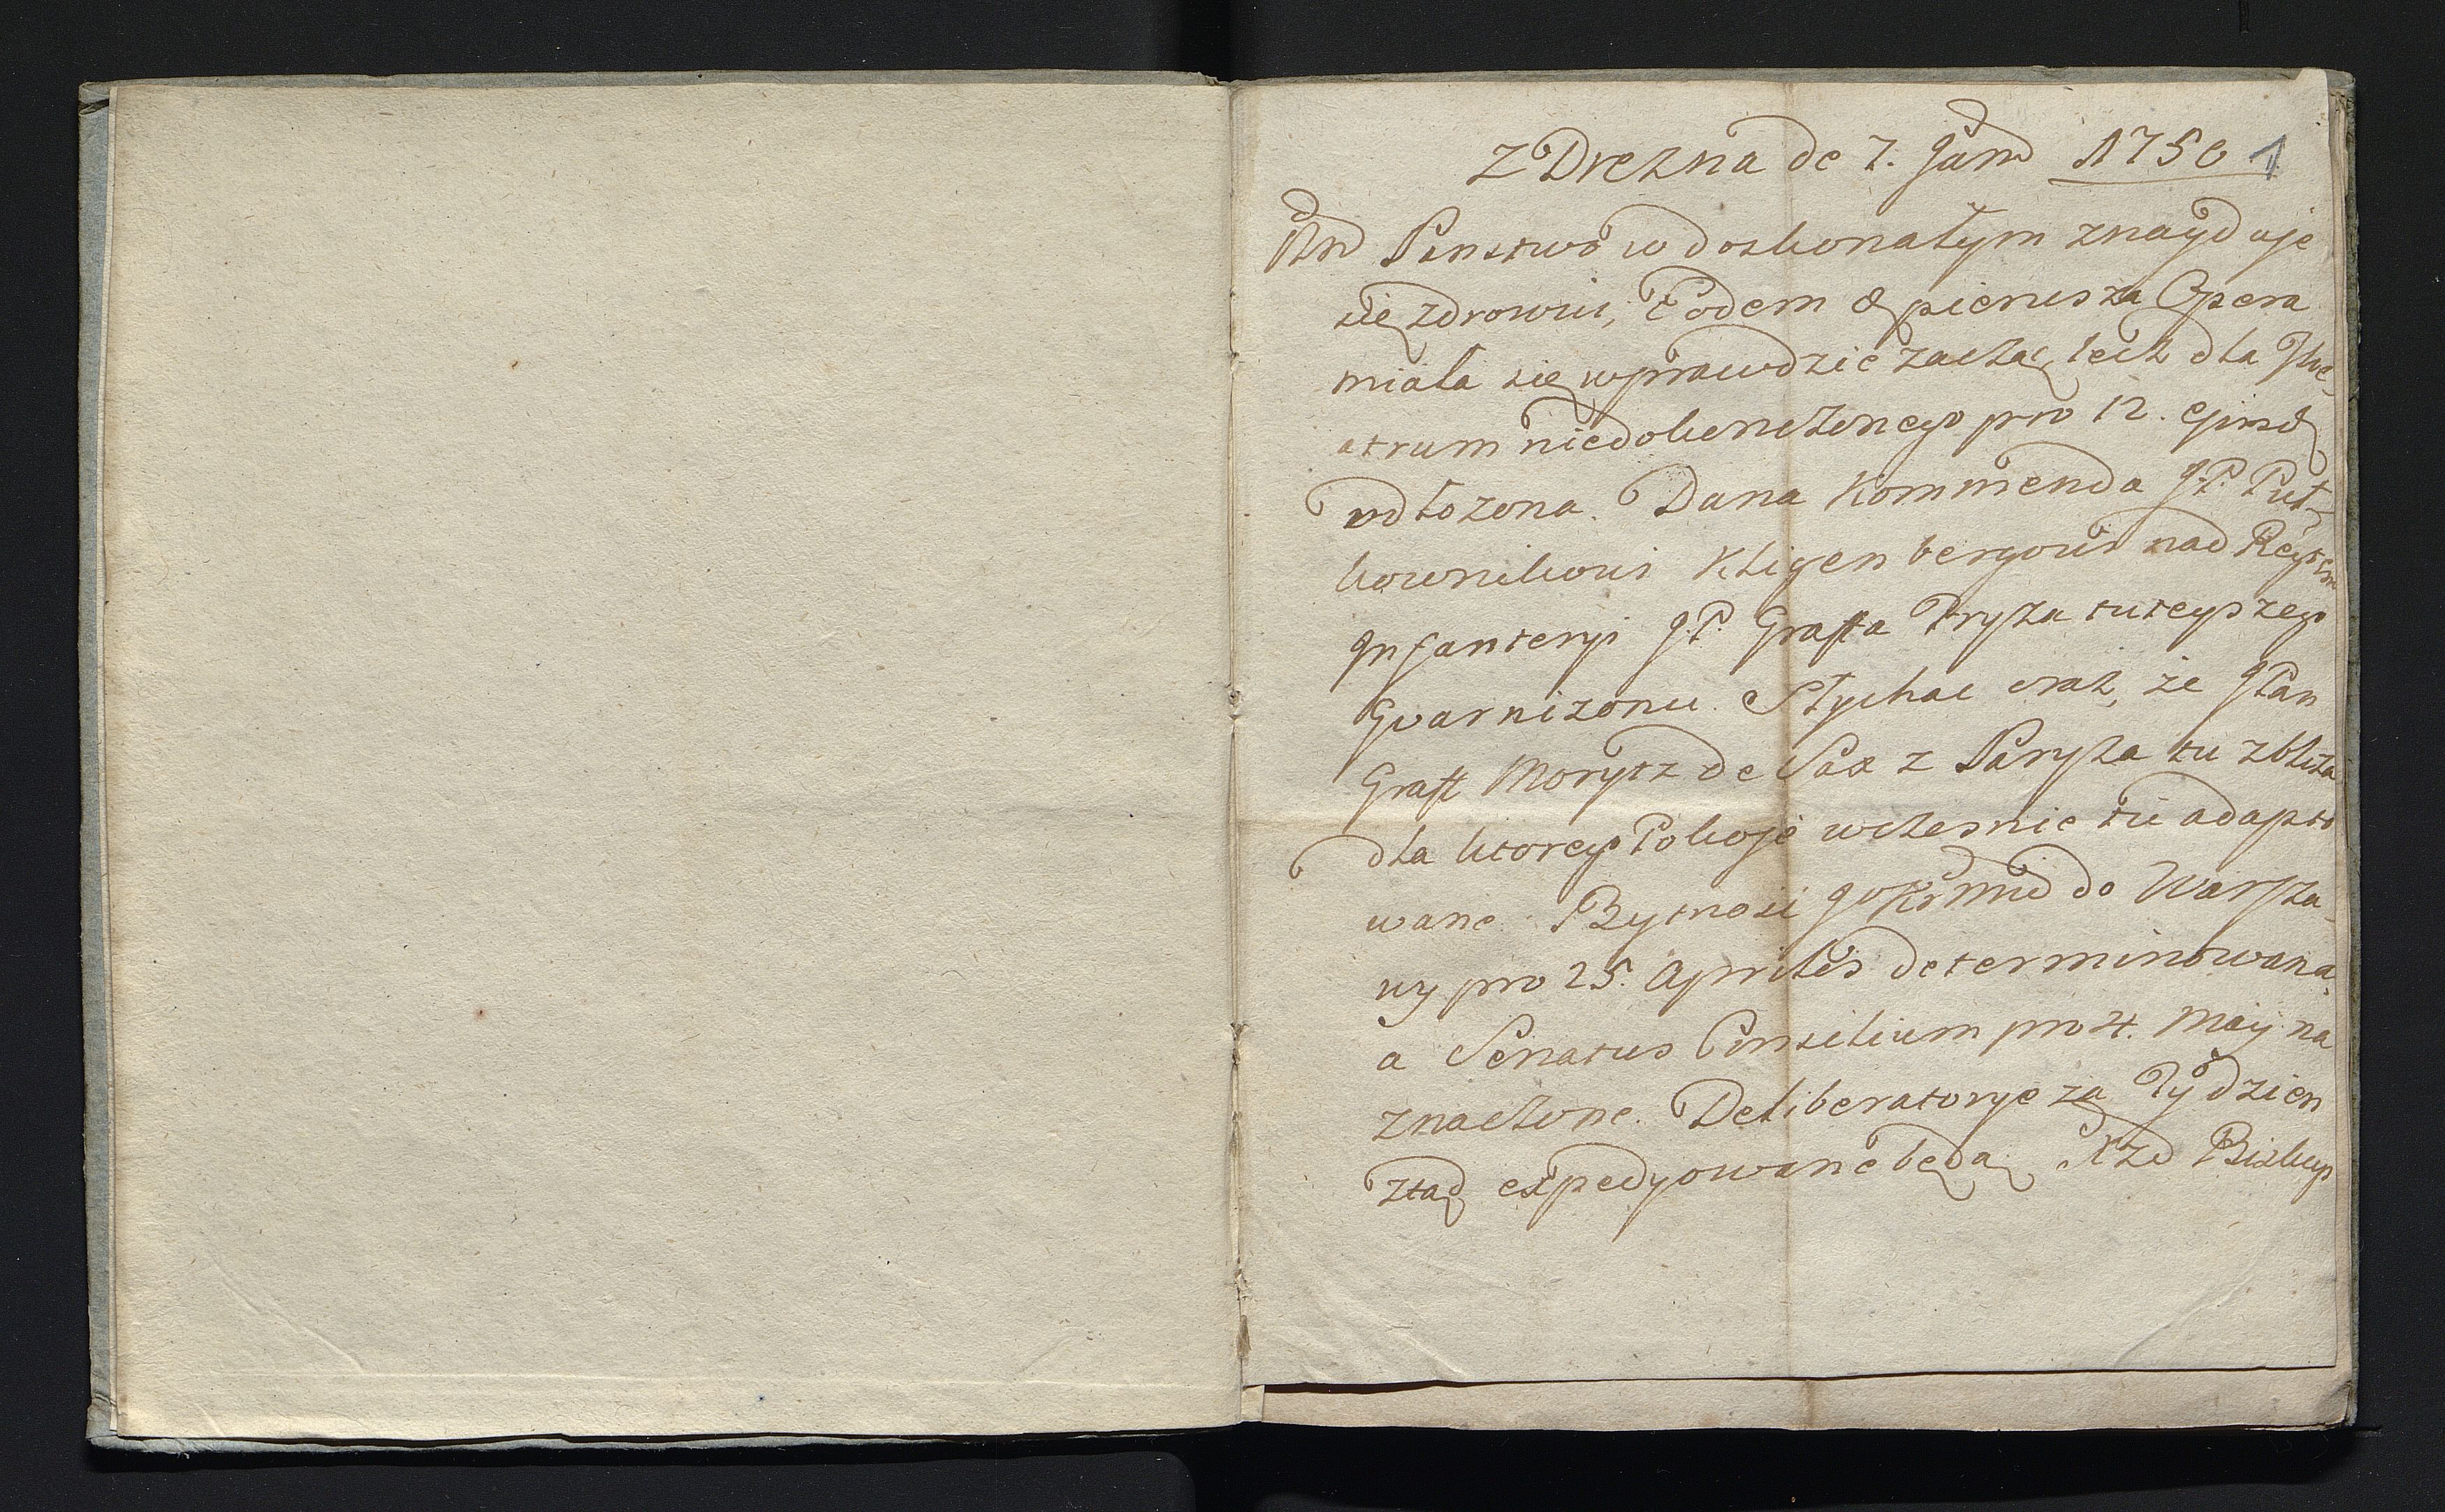 Z Drezna de 7. Jan 1750 1
Pan Panstwo w doskonałym znayduje
się zdrowiu, Eodem pierwsza Opera
miała się wprawdzie zacząc, lecz dla The-
atrum niedokonczonego pro 12. ejusd
odłozona. Dana Kommenda J.P. Puł-
kownikowi Kligenbergowi nad Reytem
Infanteryi J.P. Graffa Fryza tuteyszego
Gvarnizonu. Słychac oraz, że JPan
Graff Morytz de Sax z Paryża tu zbliża
dla ktorego Pokoje wczesnie tu adapto
wane. Bytnosć JoKrMci do Warsza-
wy pro 25. Aprilis determinowana,
a Senatus Consilium pro 4. Maij na
znaczone. Deliberatorye za Tydzien
ztąd expedyowane będą. Xżd Biskup